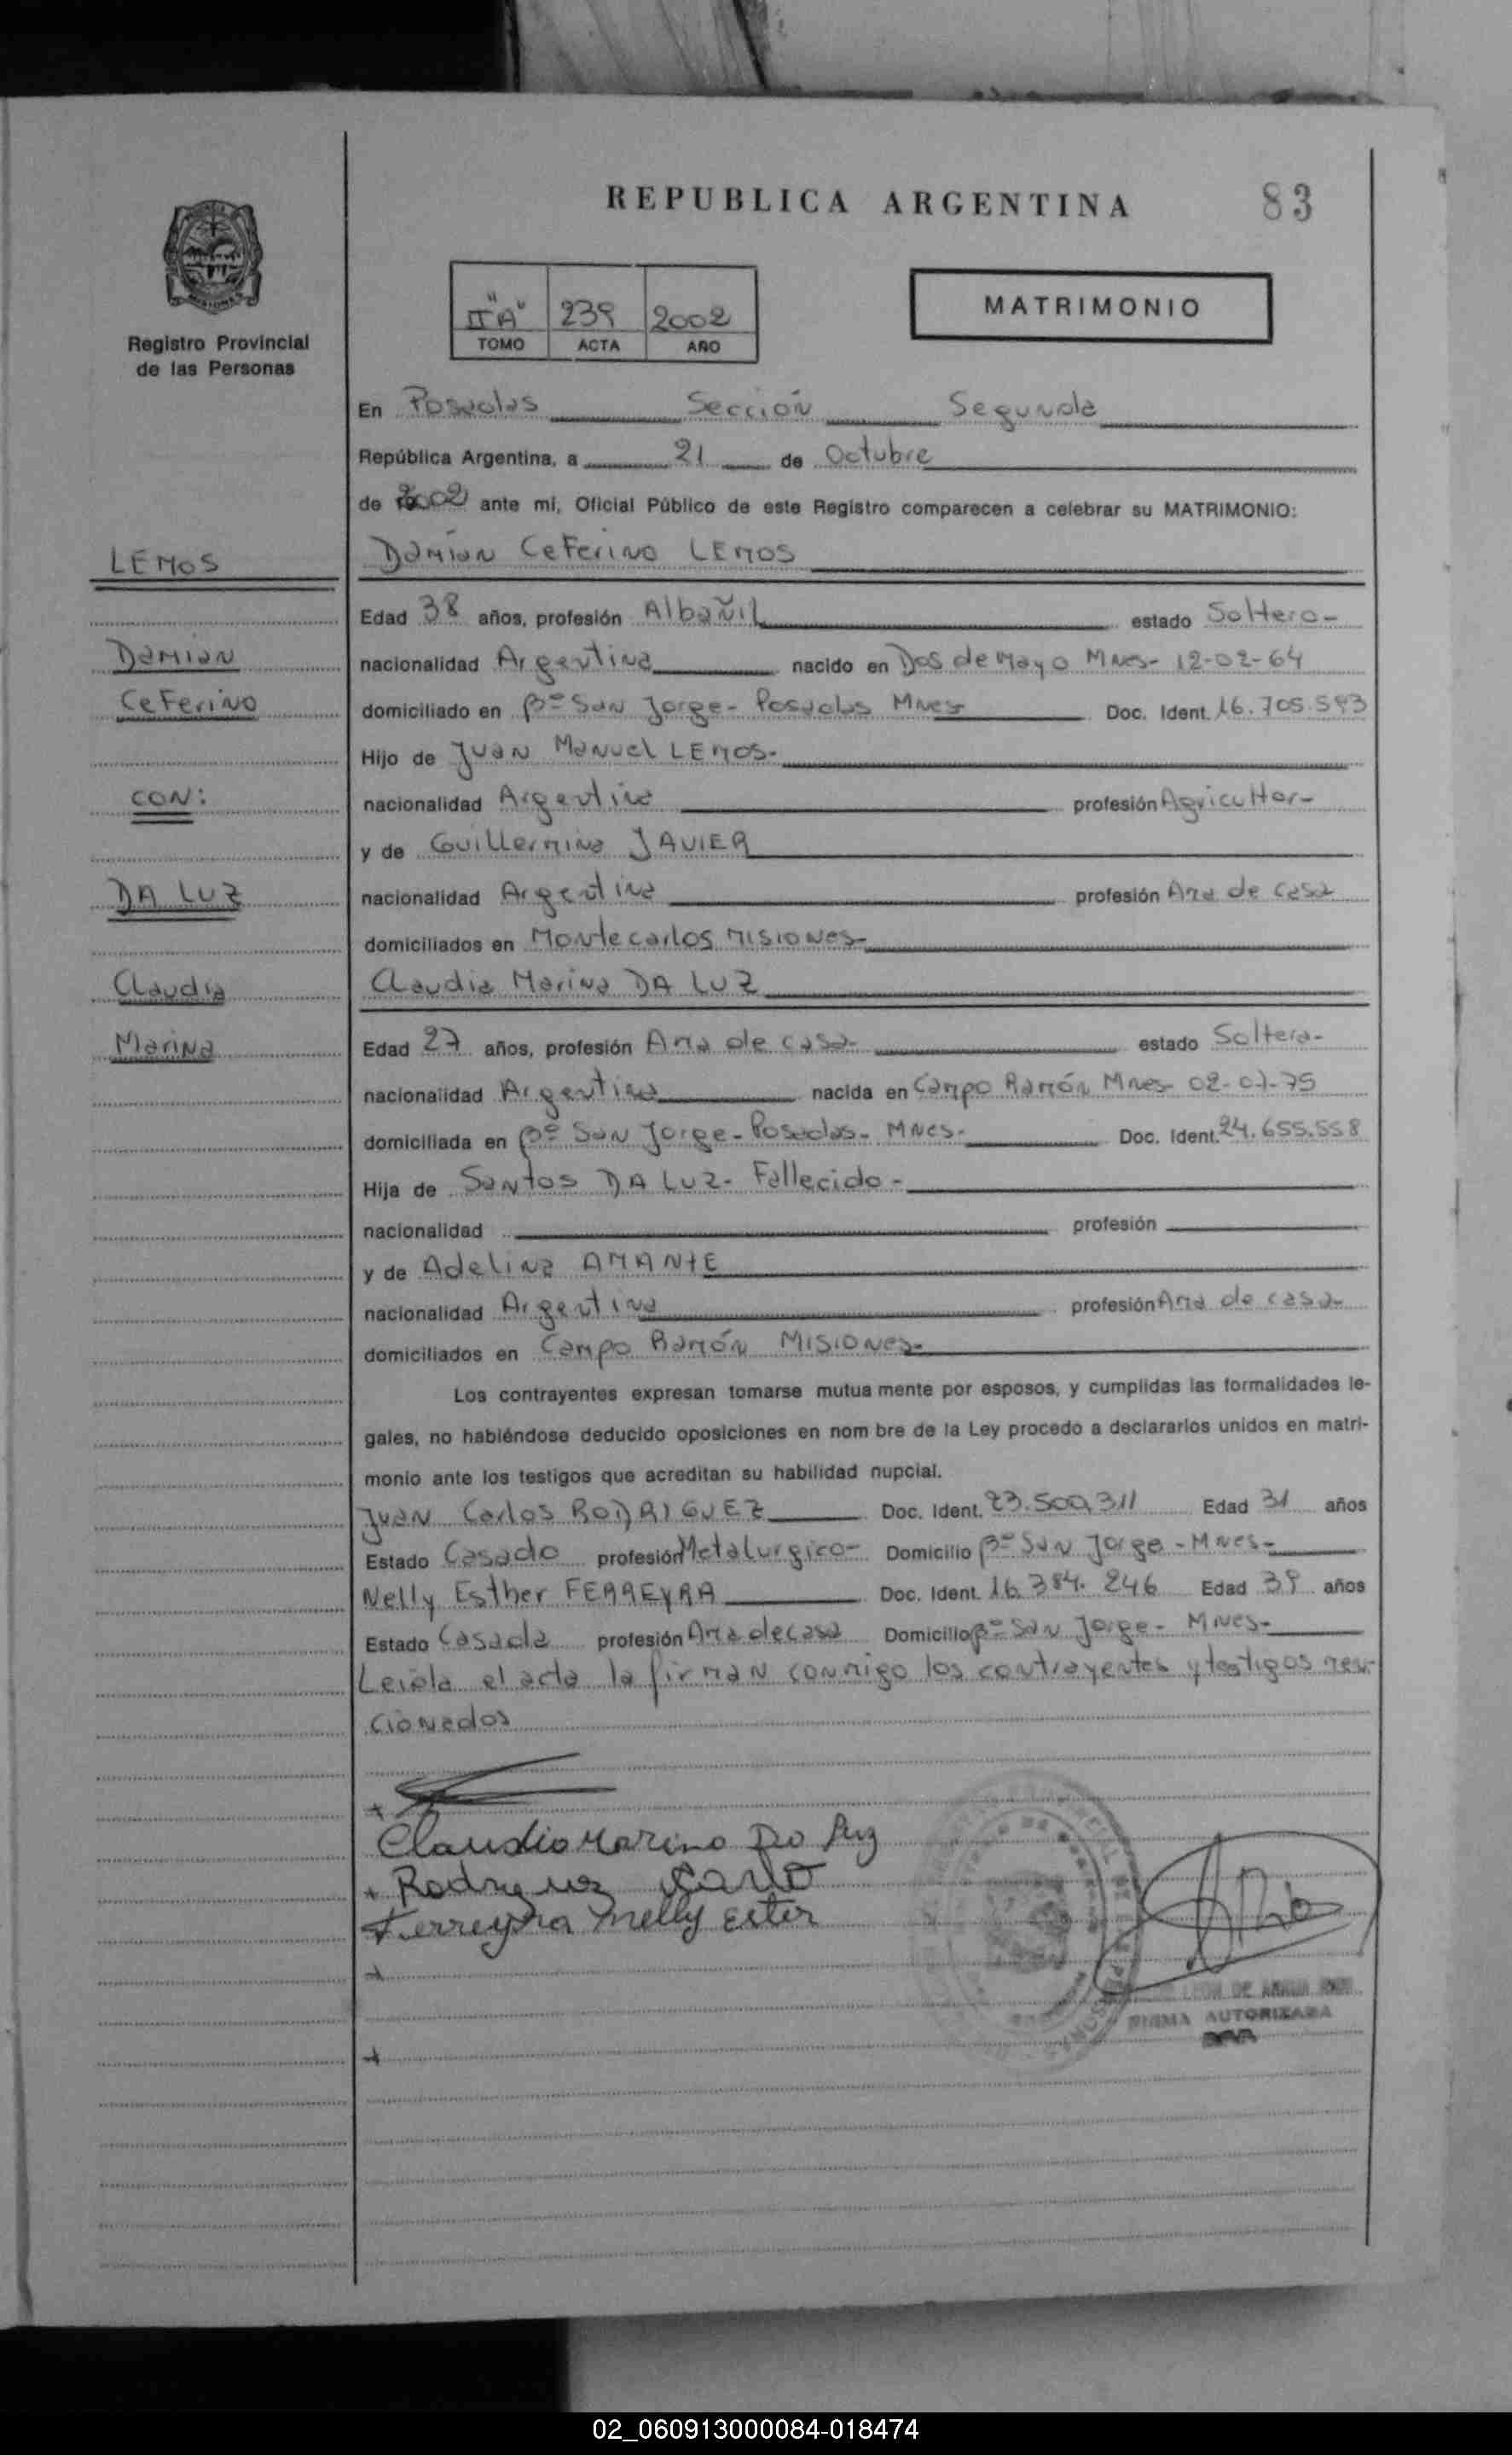 REPUBLICA ARGENTINA
83
Registro Provincial
de las Personas
"II A" 239 2002
TOMO ACTA AÑO
MATRIMONIO
En Posadas Sección Segunda
República Argentina, a 21 de Octubre
de 2002 ante mi, Oficial Público de este Registro comparecen a celebrar su MATRIMONIO:
LEMOS
Damian
Ceferino
CON:
DA LUZ
Claudia
Marina
Damian Ceferino LEMOS
Edad 38 años, profesión Albañil estado Soltero-
nacionalidad Argentina nacido en Dos de Mayo Mnes- 12-02-64
domiciliado en Bº San Jorge- Posadas Mnes- Doc. Ident. 16.705.593
Hijo de Juan Manuel LEMOS-
nacionalidad Argentina profesión Agricultor-
y de Guillermina JAVIER
nacionalidad Argentina profesión Ama de casa
domiciliados en Montecarlos MISIONES-
Claudia Marina DA LUZ
Edad 27 años, profesión Ama de casa- estado Soltera-
nacionalidad Argentina nacida en Campo Ramón Mnes- 02-07-75
domiciliada en Bº San Jorge- Posadas- Mnes- Doc. Ident. 24.655.558
Hija de Santos DA LUZ- Fallecido-
nacionalidad profesión
y de Adelina AMANTE
nacionalidad Argentina profesión Ama de casa-
domiciliados en Campo Ramón MISIONES-
Los contrayentes expresan tomarse mutua mente por esposos, y cumplidas las formalidades le-
gales, no habiéndose deducido oposiciones en nom bre de la Ley procedo a declararlos unidos en matri-
monio ante los testigos que acreditan su habilidad nupcial.
Juan Carlos RODRIGUEZ Doc. Ident. 23.500.311 Edad 31 años
Estado Casado profesión Metalurgico- Domicilio Bº San Jorge - Mnes-
Nelly Esther FERREYRA Doc. Ident. 16.384.246 Edad 39 años
Estado Casada profesión Ama de casa Domicilio Bº San Jorge- Mnes-
Leida el acta la firman conmigo los contrayentes y testigos men-
cionados
Claudia Marina Da Luz
Rodriguez Carlo
Ferreyra Nelly Ester
FIRMA AUTORIZADA
02_060913000084-018474